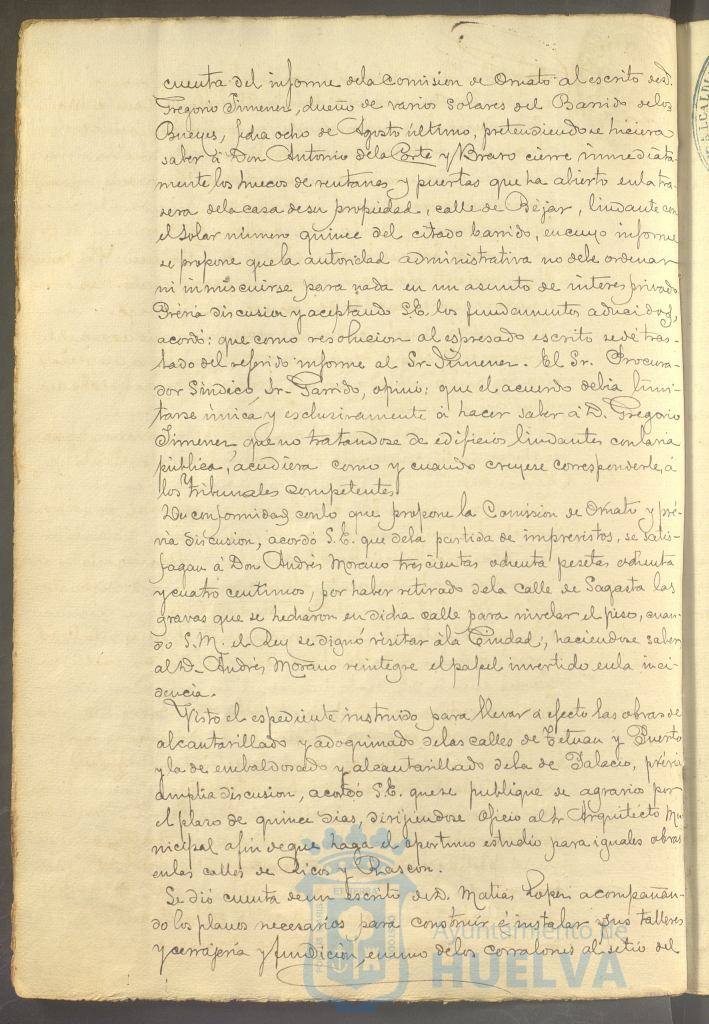 cuenta del informe dela Comision de Ornato al escrito de D.
Gregorio Jimenez, dueño de varios solares del Barrido delos
Bueyes, fecha ocho de Agosto último, pretendiendo se hiciera
saber á Don Antonio dela Corte y Bravo cierre inmediata-
mente los huecos de ventanas y puertas que ha abierto enla tra-
sera dela casa desu propiedad, calle de Béjar, lindante con
el solar número quince del citado barrido, encuyo informe
se propone quela autoridad administrativa no debe ordenar
ni inmiscuirse para nada en un asunto de interes privado
Prévia discusion y aceptando S.E. los fundamentos aducidos,
acordó: que como resolucion al espresado escrito sedé tras-
lado del referido informe al Sr. Jimenez. El Sr. Procura-
dor Síndico Sr. Garrido, opinó: que el acuerdo debia limi-
tarse única y esclusivamente á hacer saber á D. Gregorio
Jimenez, que no tratandose de edificios lindantes conlavia
pública, acudiera como y cuando creyese corresponderle, á
los Tribunales competentes
De conformidad conlo que propone la Comision de Ornato y pré-
via discusion, acordó S.E. que dela partida de imprevistos, se satis-
fagan á Don Andrés Morano trescientas ochenta pesetas ochenta
y cuatro centimos, por haber retirado dela calle de Sagasta las
gravas que se hecharon en dicha calle para nivelar el piso, cuan-
do S.M. el Rey se dignó visitar ála Ciudad; haciendose saber
al D. Andrés Morano reintegre el papel invertido enla inci-
dencia.
Visto el espediente instruido para llevar á efecto las obras de
alcantarillado y adoquinado delas calles de Tetuan y Puerto
y la de embaldosado y alcantarillado dela de Palacio, prévia
amplia discusion, acordó S.E. quese publique de agravios por
el plazo de quince dias, dirijiendose oficio al Sr Arquitecto Mu-
nicipal afin deque haga el oportuno estudio para iguales obras
enlas calles de Ricos y Rascon.
Se dió cuenta deun escrito de D. Matias Lopez acompañan-
do los planos necesarios para construir é instalar sus talleres
y cerrajería y fundicion, enuno delos corralones al sitio del
Ayuntamiento de
HUELVA